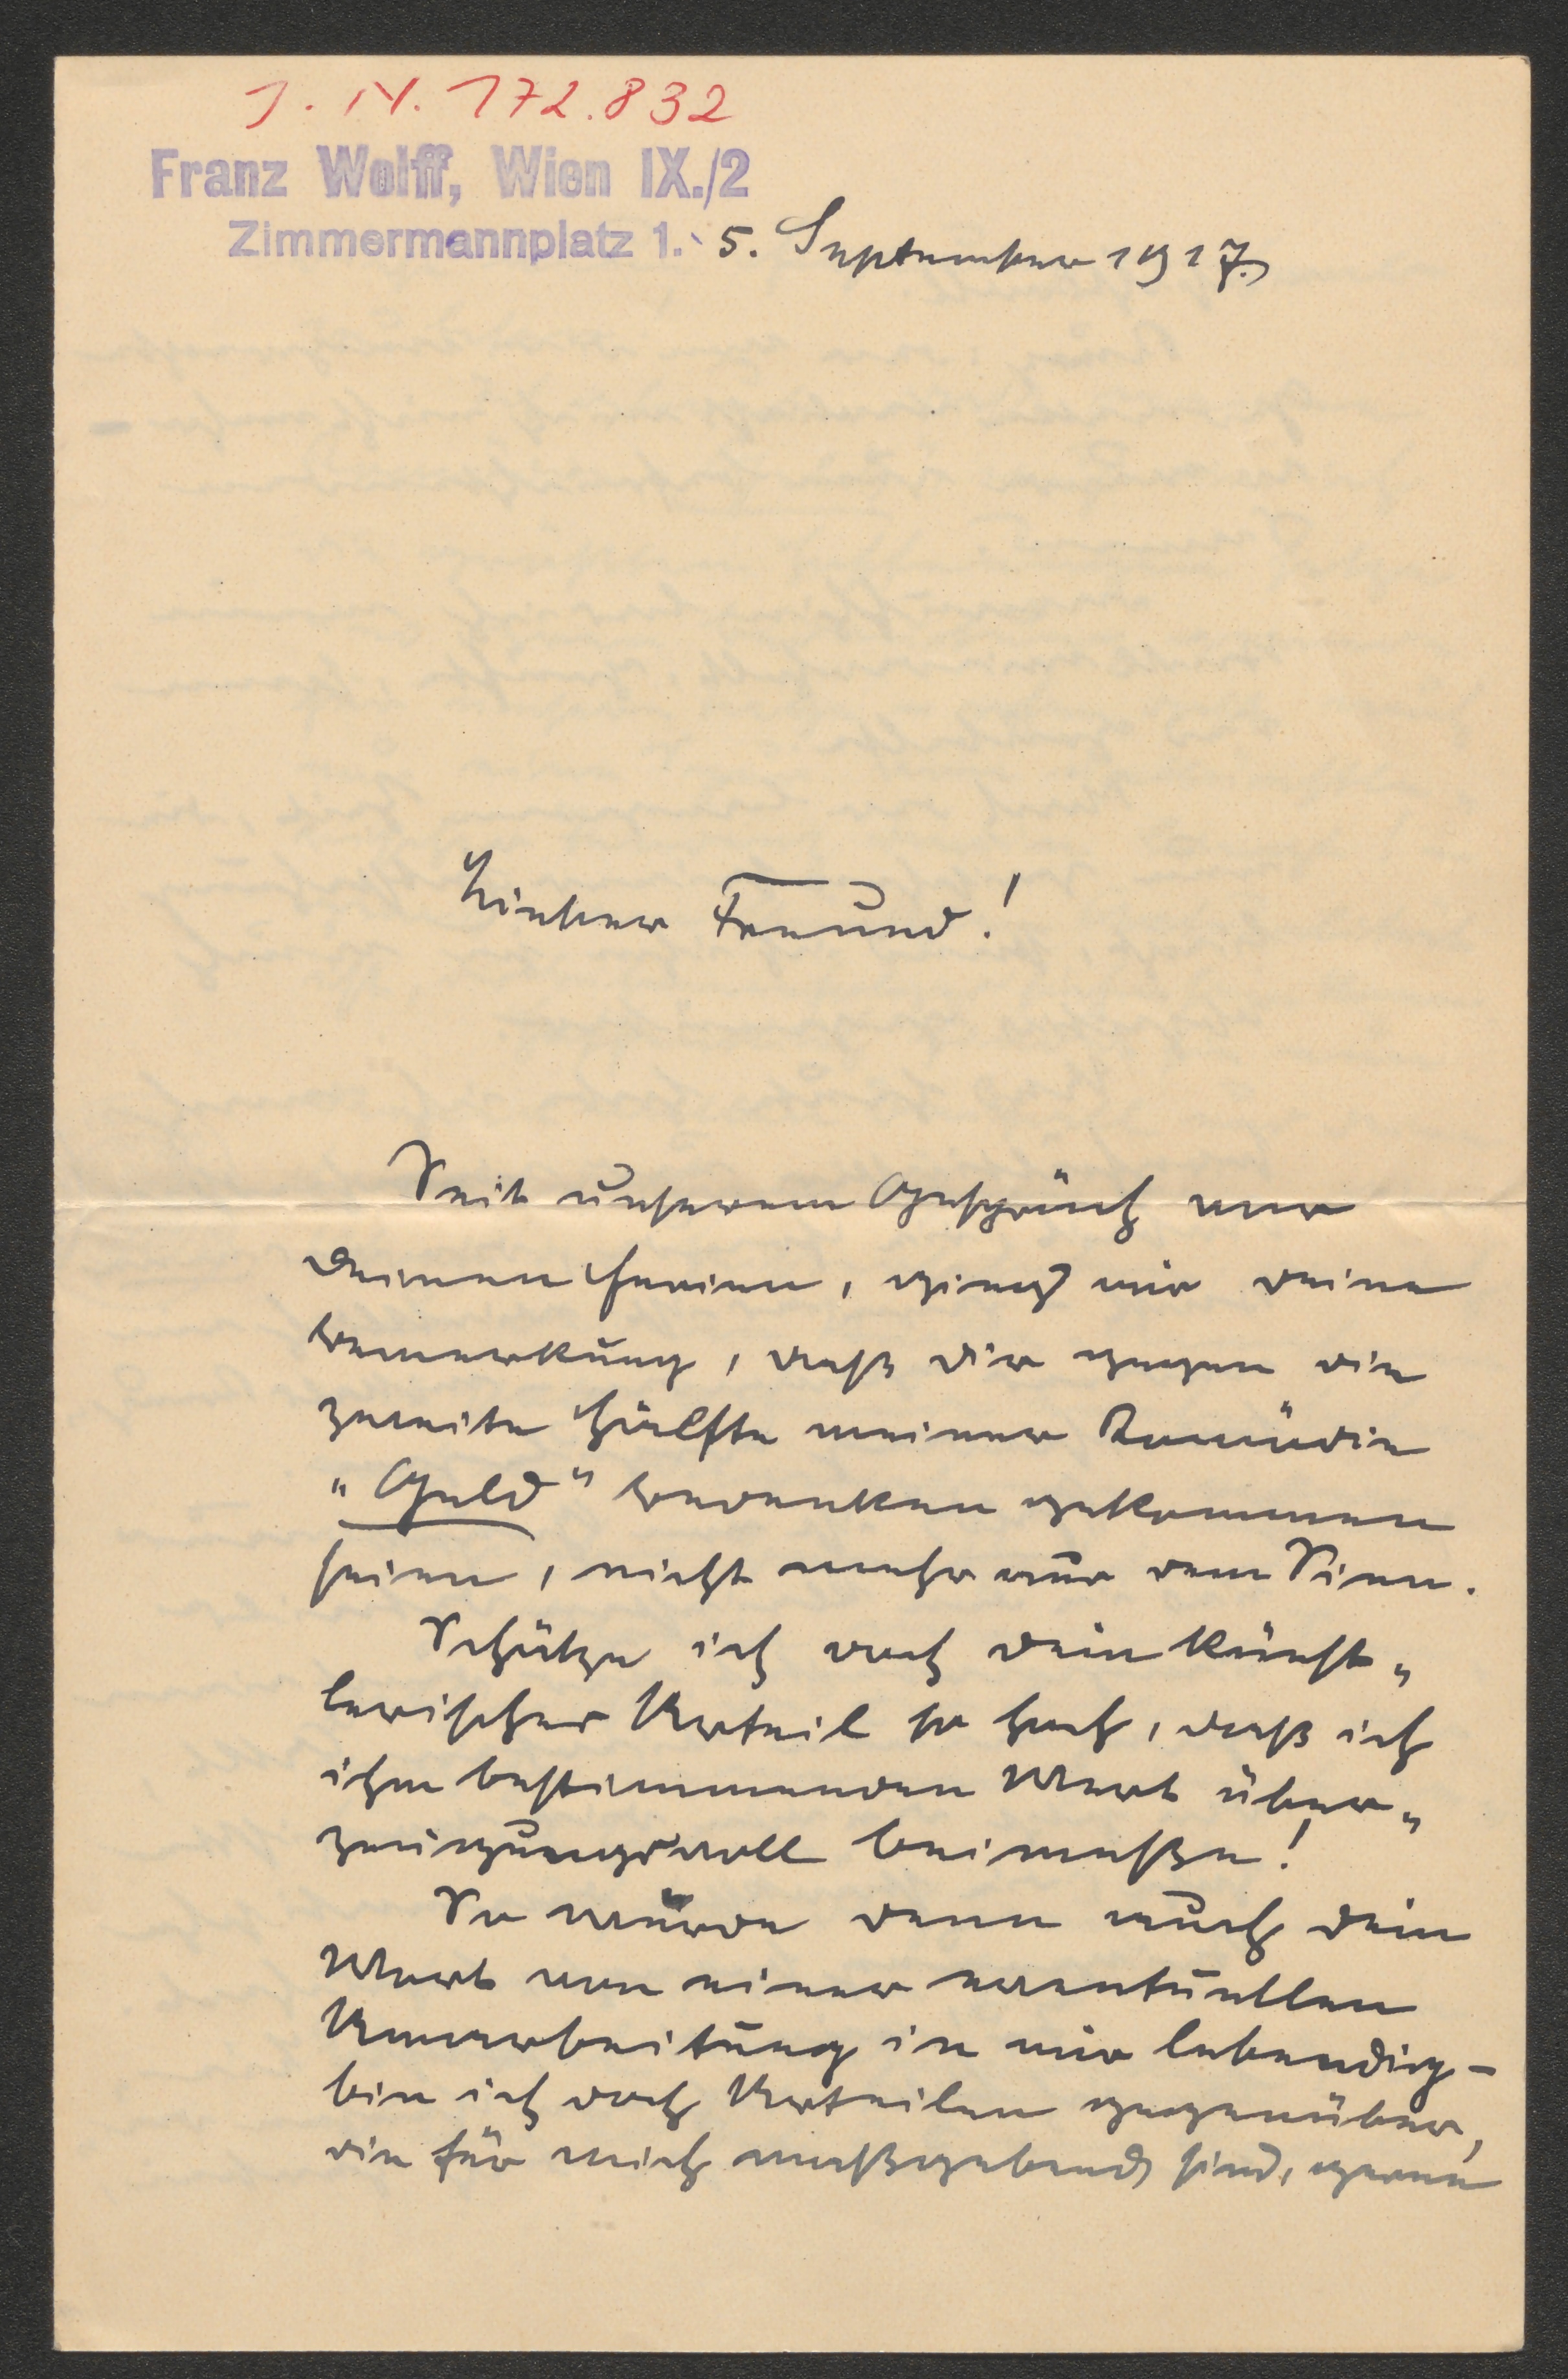 J. N. 172.832
Franz Wolff, Wien IX./2
Zimmermannplatz 1.
5. September 1917.
Lieber Freund!
Seit unserem Gespräch vor
deinen Ferien, ging mir deine
Bemerkung, daß dir gegen die
zweite Hälfte meiner Komödie
„Geld" Bedenken gekommen
seien, nicht mehr aus dem Sinn.
Schätze ich doch dein künst„
lerisches Urteil so hoch, daß ich
ihm bestimmenden Wert über„
zeugungsvoll beimesse!
So wurde denn auch dein
Wort von einer eventuellen
Umarbeitung in mir lebendig –
bin ich doch Urteilen gegenüber,
die für mich maßgebend sind, gerne